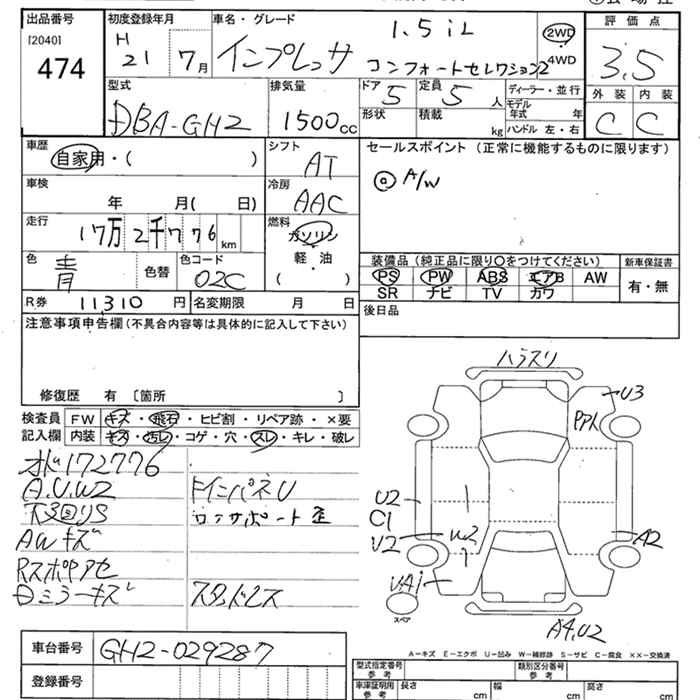 出品番号 初度登録年月 車名・グレード 評価点
[2040] H 1.5iL 2WD
474 21 7月 インプレッサ コンフォートセレクション2 4WD 3.5
型式 排気量 ドア 定員 ディーラー・並行 外装 内装
DBA-GH2 1500cc 5 5人 モデル年式 年 C C
形状 積載 kg ハンドル 左・右
車歴 シフト セールスポイント（正常に機能するものに限ります）
自家用・( ) AT ⓐ A/W
車検 冷房
年 月( 日) AAC
走行 燃料
17万2千776km ガソリン
色 色替 色コード 軽・油 装備品（純正品に限り○をつけてください） 新車保証書
青 02C ( ) PS PW ABS エアB AW 有・無
R券 11310円 名変期限 月 日 SR ナビ TV カワ
注意事項申告欄（不具合内容等は具体的に記入して下さい） 後日品
修復歴 有〔箇所 〕
検査員 FW キズ・飛石・ヒビ割・リペア跡・×要
記入欄 内装 キズ・汚レ・コゲ・穴・スレ・キレ・破レ
ハラスリ
U3
オド172776
A.U.W2 トインパネU
ロッサポート歪
AWキズ
RスポPアセ
Dミラーキズ スタッドレス
U2
C1
V2 W2 A2
UA1
スペア
A4.U2
A－キズ E－エクボ U－凹み W－補修跡 S－サビ C－腐食 ××－交換済
車台番号 GH2-029287
登録番号
型式指定番号 参考 類別区分番号 参考
車庫証明用 参考 長さ cm 幅 cm 高さ cm